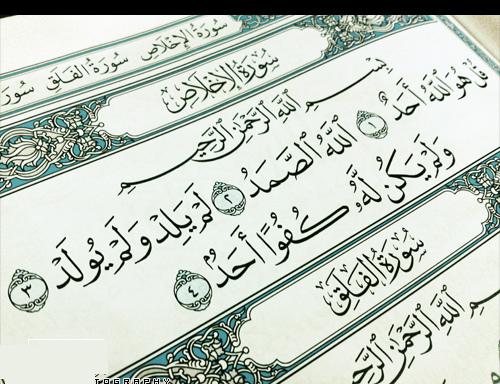 سُورَةُ الإِخْلَاصِ سُورَةُ الفَلَقِ سُورَ
سُورَةُ الإِخْلَاصِ
بِسْمِ ٱللَّهِ ٱلرَّحْمَٰنِ ٱلرَّحِيمِ
قُلْ هُوَ ٱللَّهُ أَحَدٌ ١ ٱللَّهُ ٱلصَّمَدُ ٢ لَمْ يَلِدْ وَلَمْ يُولَدْ ٣
وَلَمْ يَكُن لَّهُۥ كُفُوًا أَحَدٌۢ ٤
سُورَةُ الفَلَقِ
ٱللَّهِ ٱلرَّحْمَٰنِ ٱلرَّحِ
TOGRAPHY